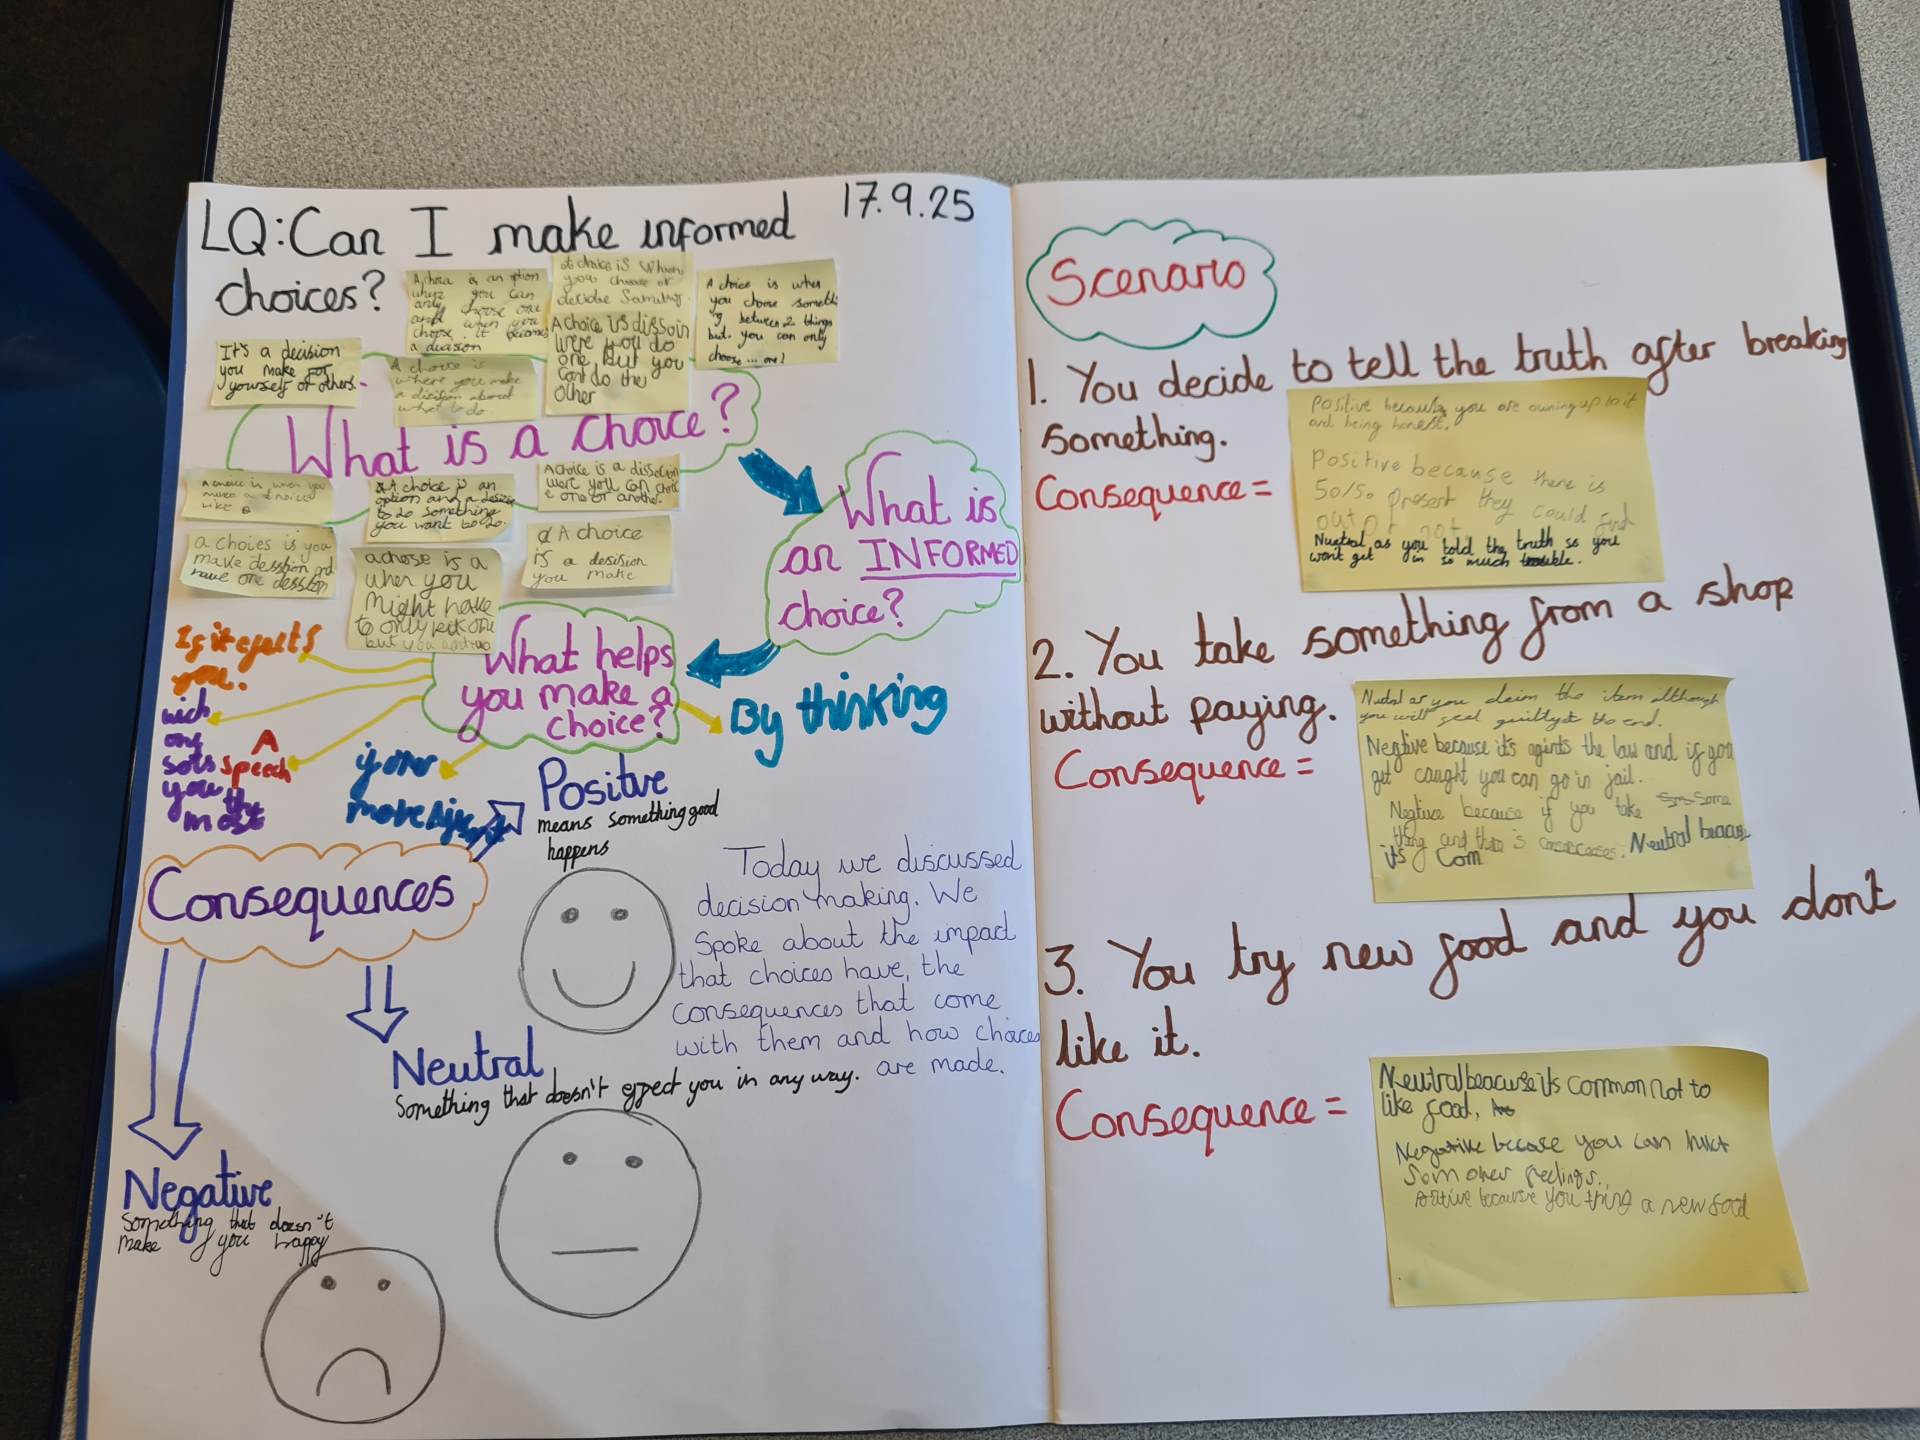 LQ: Can I make informed
choices?
17.9.25
A choice is an option
where you can
only choose one
and when you
choose it becomes
a decision
choice is when
you choose or
decide
A choice is dissoin
were you do
one but you
cant do the
other
A choice is when
you choose
between 2 things
but you can only
choose... one!
It's a decision
you make for
yourself or others.
A choice is
where you make
a disision about
what to do
What is a choice?
A choice is when you
make a
like
A choke is an
option and a
to do something
you want to do.
A choice is a
wert you can
one or another.
a choies is you
make desstion and
have one desstion
a chose is a
when you
might have
to only pick one
but you
A choice
is a desision
you make
What is
an INFORMED
choice?
What helps
you make a
choice?
If it efects
you.
wich
one
sots
you the
most
A
speech
if
By thinking
Consequences
Positive
means something good
happens
Neutral
Something that doesn't effect you in any way.
Negative
Something that doesn't
make you happy
Today we discussed
decision making. We
spoke about the impact
that choices have, the
consequences that come
with them and how choices
are made.
Scenario
1. You decide to tell the truth after breaking
something.
Consequence =
Positive because you are owning up to it
and being honest.
Positive because there is
50/50 present they could find
out or not
Nuetral as you told the truth so you
won't get in so much trouble.
2. You take something from a shop
without paying.
Consequence =
Nutral as you claim the item although
you will feel guilty at the end.
Negtive because it's agints the law and if you
get caught you can go in jail.
Negtive because if you take some
thing and there is Neutral beacuse
its Com
3. You try new food and you don't
like it.
Consequence =
Neutral beacuse its common not to
like food,
Negative because you can hurt
som ones feelings..
Positive because you tring a new food